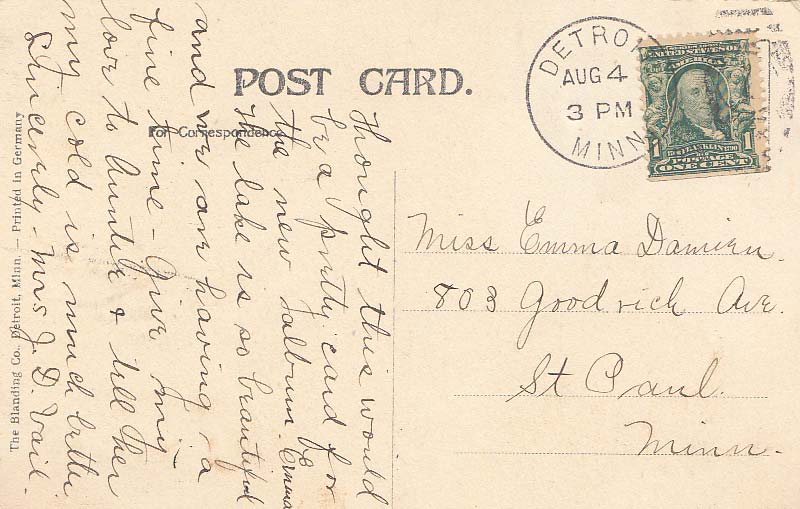 POST CARD.
For Correspondence
DETROI
AUG 4
3 PM
MINN
UNITED STATES OF
AMERICA
1 FRANKLIN 1790
POSTAGE
1 ONE CENT 1
Thought this would
be a pretty card for
the new album. Emma
The lake is so beautiful
and we are having a
fine time - Give my
love to Auntie & tell her
my cold is much better
Sincerely - Mrs J. D. Vail.
Miss Emma Damien.
803 Goodrich Ave.
St Paul.
Minn.
The Blanding Co., Detroit, Minn. — Printed in Germany